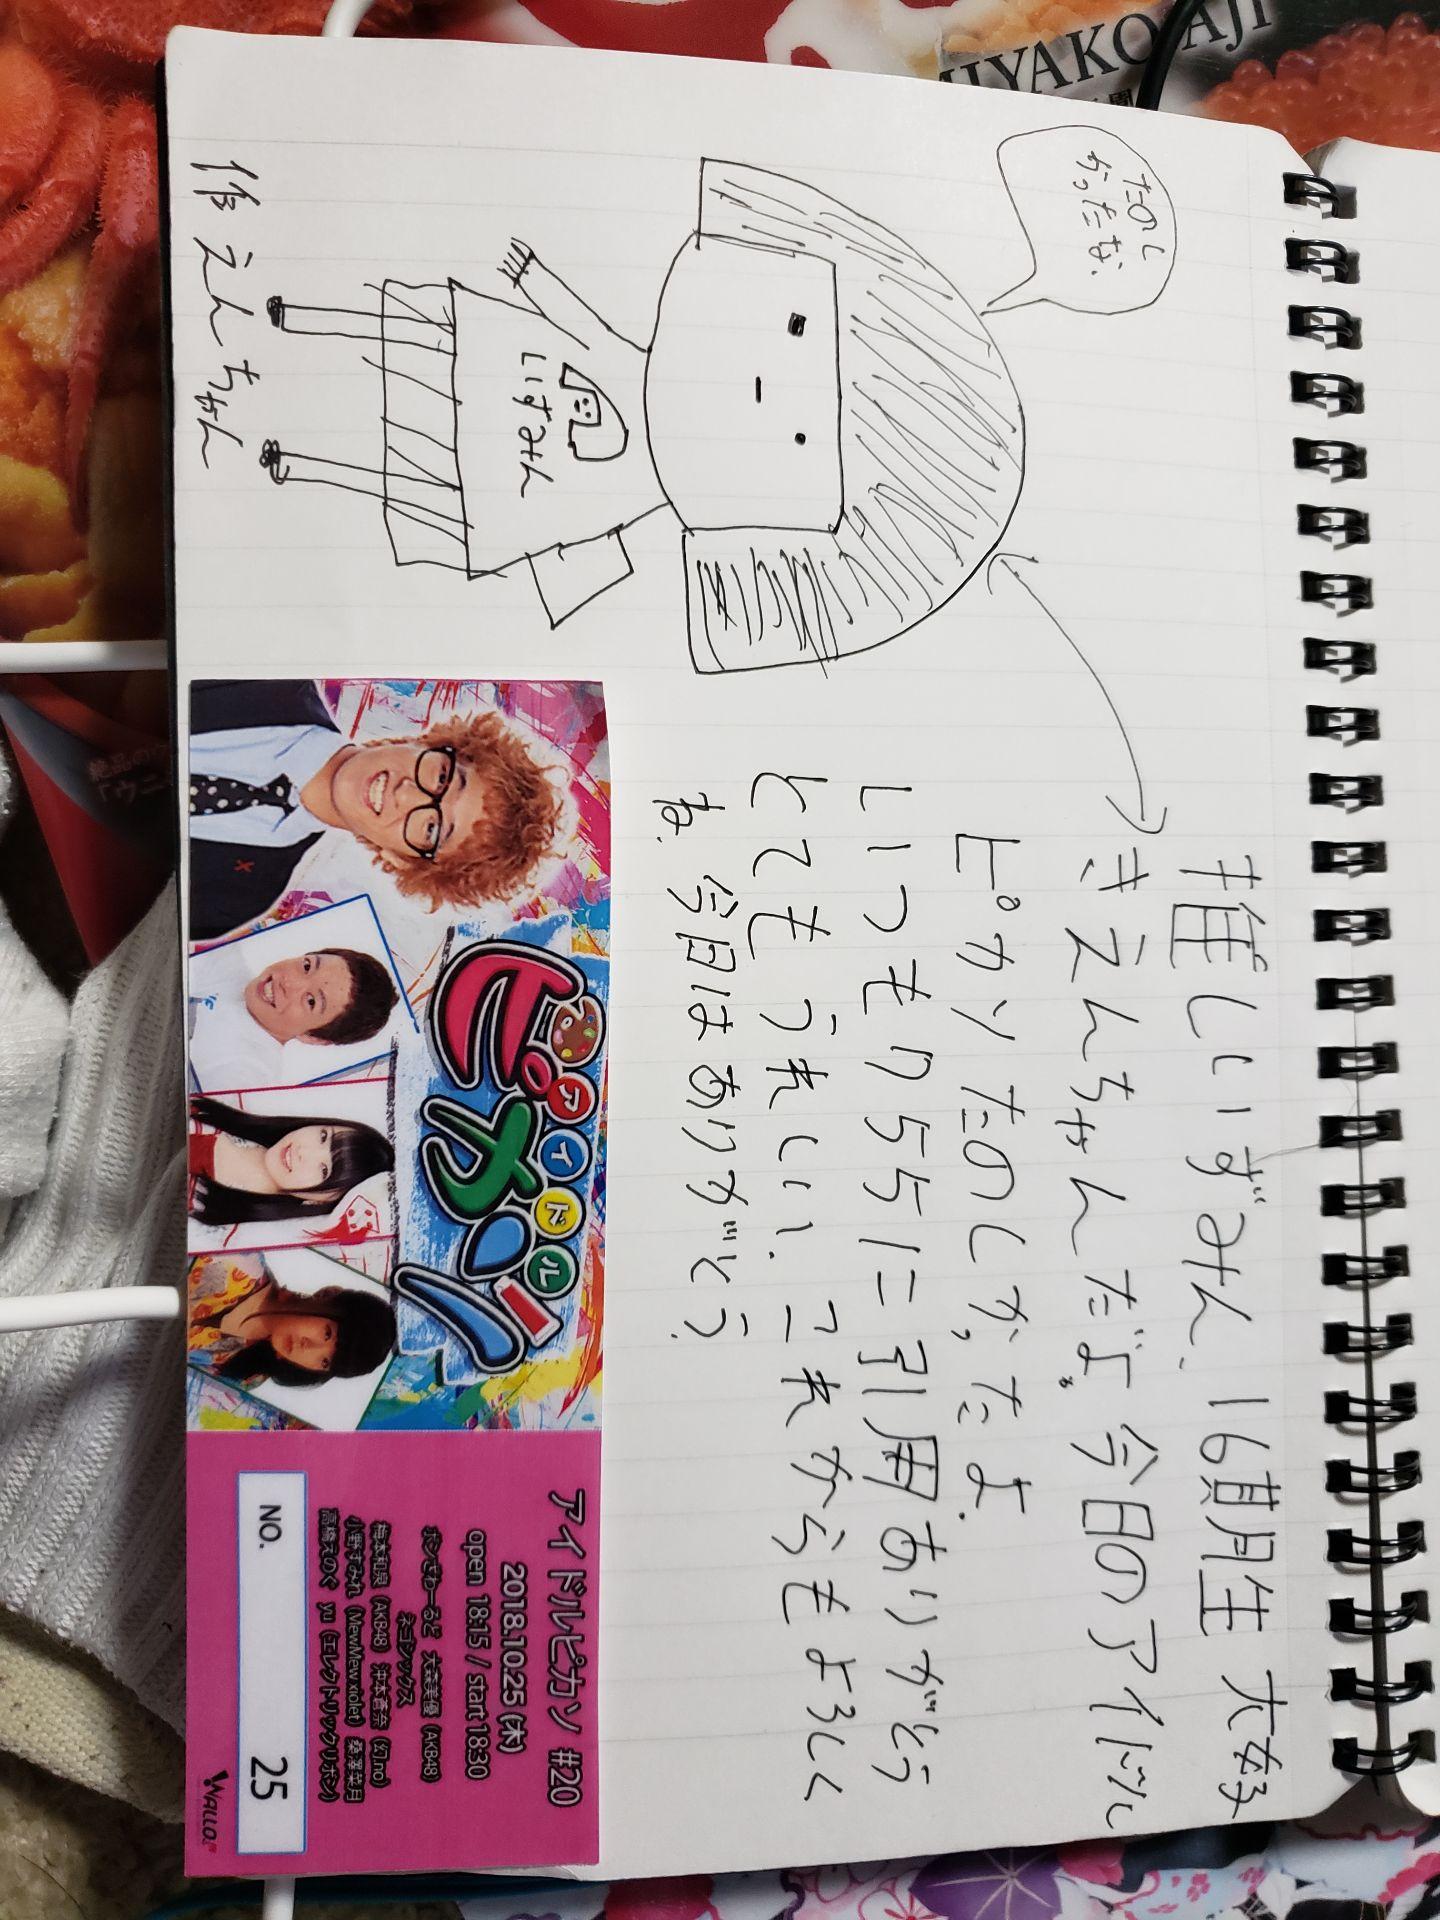 たのし
かったな.
いずみん
作 えんちゃん
推しいずみん. 16期生 大好
きえんちゃんだよ。今日のアイドル
ピカソたのしかったよ.
いつもりららに引用ありがとう
とてもうれしい. これからもよろしく
ね. 今日はありがとう.
アイドル
ピカソ
アイドルピカソ #20
2018.10.25 (木)
open 18:15 / start 18:30
大森美優 (AKB48)
ネコシックス
梅本和泉 (AKB48) 沖本蒼奈 (幻.no)
小野すみれ (MewMew xiolet) 桑澤菜月
高橋えのぐ yu (エレクトリックリボン)
NO. 25
WALLOP
MIYAKO AJI